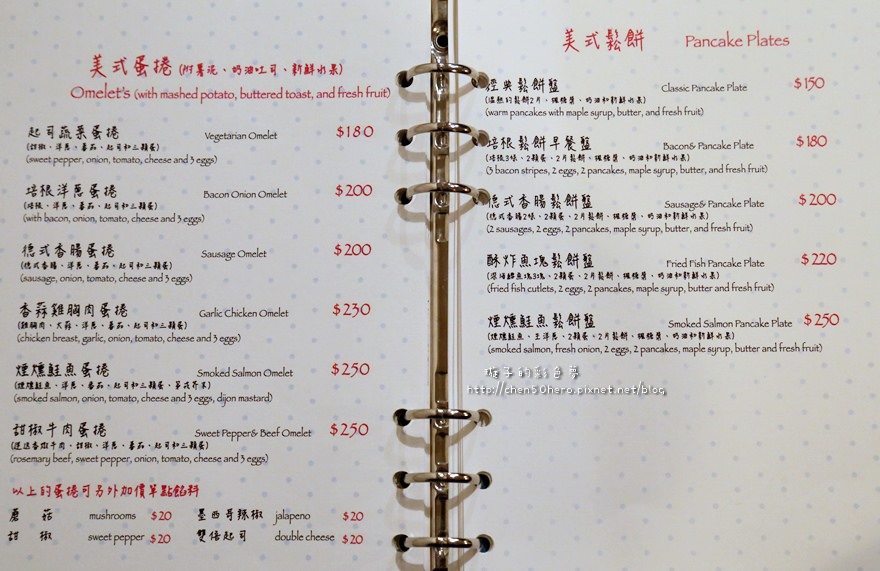 美式蛋捲 (附薯泥、奶油吐司、新鮮水果)
Omelet's (with mashed potato, buttered toast, and fresh fruit)
起司蔬菜蛋捲 Vegetarian Omelet $180
(甜椒、洋蔥、番茄、起司和三顆蛋)
(sweet pepper, onion, tomato, cheese and 3 eggs)
培根洋蔥蛋捲 Bacon Onion Omelet $200
(培根、洋蔥、番茄、起司和三顆蛋)
(with bacon, onion, tomato, cheese and 3 eggs)
德式香腸蛋捲 Sausage Omelet $200
(德式香腸、洋蔥、番茄、起司和三顆蛋)
(sausage, onion, tomato, cheese and 3 eggs)
香蒜雞胸肉蛋捲 Garlic Chicken Omelet $230
(雞胸肉、大蒜、洋蔥、番茄、起司和三顆蛋)
(chicken breast, garlic, onion, tomato, cheese and 3 eggs)
煙燻鮭魚蛋捲 Smoked Salmon Omelet $250
(煙燻鮭魚、洋蔥、番茄、起司和三顆蛋、芥末)
(smoked salmon, onion, tomato, cheese and 3 eggs, dijon mastard)
甜椒牛肉蛋捲 Sweet Pepper& Beef Omelet $250
(迷迭香椒牛肉、甜椒、洋蔥、番茄、起司和三顆蛋)
(rosemary beef, sweet pepper, onion, tomato, cheese and 3 eggs)
以上的蛋捲可另外加價單點餡料
蘑菇 mushrooms $20 墨西哥辣椒 jalapeno $20
甜椒 sweet pepper $20 雙倍起司 double cheese $20
美式鬆餅 Pancake Plates
經典鬆餅盤 Classic Pancake Plate $150
(溫熱的鬆餅2片、楓糖漿、奶油和新鮮水果)
(warm pancakes with maple syrup, butter, and fresh fruit)
培根鬆餅早餐盤 Bacon& Pancake Plate $180
(培根3條、2顆蛋、2片鬆餅、楓糖漿、奶油和新鮮水果)
(3 bacon stripes, 2 eggs, 2 pancakes, maple syrup, butter, and fresh fruit)
德式香腸鬆餅盤 Sausage& Pancake Plate $200
(德式香腸2條、2顆蛋、2片鬆餅、楓糖漿、奶油和新鮮水果)
(2 sausages, 2 eggs, 2 pancakes, maple syrup, butter, and fresh fruit)
酥炸魚塊鬆餅盤 Fried Fish Pancake Plate $220
(深海鱈魚塊3塊、2顆蛋、2片鬆餅、楓糖漿、奶油和新鮮水果)
(fried fish cutlets, 2 eggs, 2 pancakes, maple syrup, butter and fresh fruit)
煙燻鮭魚鬆餅盤 Smoked Salmon Pancake Plate $250
(煙燻鮭魚、生洋蔥、2顆蛋、2片鬆餅、楓糖漿、奶油和新鮮水果)
(smoked salmon, fresh onion, 2 eggs, 2 pancakes, maple syrup, butter and fresh fruit)
璇子的彩色夢
http://chen50hero.pixnet.net/blog